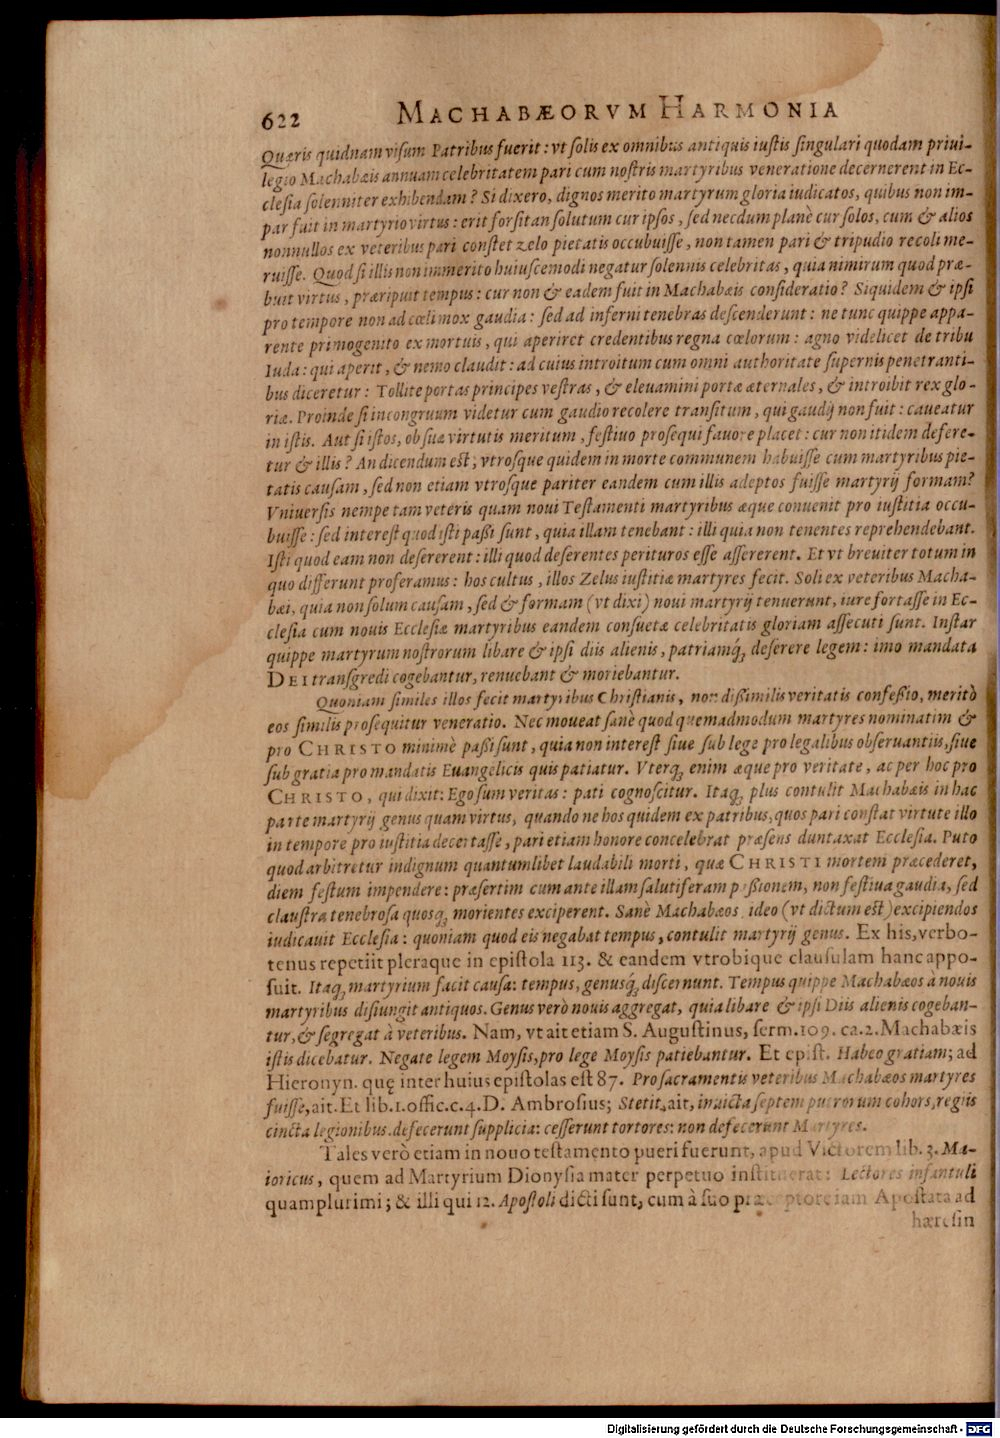 622 MACHABÆORVM HARMONIA
Quæris quidnam visum Patribus fuerit: vt solis ex omnibus antiquis iustis singulari quodam priui-
legio Machabæis annuam celebritatem pari cum nostris martyribus veneratione decernerent in Ec-
clesia solenniter exhibendam? Si dixero, dignos merito martyrum gloria iudicatos, quibus non im-
par fuit in martyrio virtus: erit forsitan solutum cur ipsos, sed necdum planè cur solos, cum & alios
nonnullos ex veteribus pari constet zelo pietatis occubuisse, non tamen pari & tripudio recoli me-
ruisse. Quod si illis non immerito huiuscemodi negatur solennis celebritas, quia nimirum quod præ-
buit virtus, præripuit tempus: cur non & eadem fuit in Machabæis consideratio? Siquidem & ipsi
pro tempore non ad cœli mox gaudia: sed ad inferni tenebras descenderunt: ne tunc quippe appa-
rente primogenito ex mortuis, qui aperiret credentibus regna cœlorum: agno videlicet de tribu
Iuda: qui aperit, & nemo claudit: ad cuius introitum cum omni authoritate supernis penetranti-
bus diceretur: Tollite portas principes vestras, & eleuamini portæ æternales, & introibit rex glo-
riæ. Proinde si incongruum videtur cum gaudio recolere transitum, qui gaudij non fuit: caueatur
in istis. Aut si istos, ob suæ virtutis meritum, festiuo prosequi fauore placet: cur non itidem defere-
tur & illis? An dicendum est; vtrosque quidem in morte communem habuisse cum martyribus pie-
tatis causam, sed non etiam vtrosque pariter eandem cum illis adeptos fuisse martyrij formam?
Vniuersis nempe tam veteris quam noui Testamenti martyribus æque conuenit pro iustitia occu-
buisse: sed interest quod isti paßi sunt, quia illam tenebant: illi quia non tenentes reprehendebant.
Isti quod eam non desererent: illi quod deserentes perituros esse assererent. Et vt breuiter totum in
quo differunt proferamus: hos cultus, illos Zelus iustitiæ martyres fecit. Soli ex veteribus Macha-
bæi, quia non solum causam, sed & formam (vt dixi) noui martyrij tenuerunt, iure fortasse in Ec-
clesia cum nouis Ecclesiæ martyribus eandem consuetæ celebritatis gloriam assecuti sunt. Instar
quippe martyrum nostrorum libare & ipsi diis alienis, patriamq́; deserere legem: imo mandata
DEI transgredi cogebantur, renuebant & moriebantur.
Quoniam similes illos fecit martyribus Christianis, non dißimilis veritatis confeßio, meritò
eos similis prosequitur veneratio. Nec moueat sanè quod quemadmodum martyres nominatim &
pro CHRISTO minimè paßi sunt, quia non interest siue sub lege pro legalibus obseruantiis, siue
sub gratia pro mandatis Euangelicis quis patiatur. Vterq; enim æque pro veritate, ac per hoc pro
CHRISTO, qui dixit: Ego sum veritas: pati cognoscitur. Itaq; plus contulit Machabæis in hac
parte martyrij genus quam virtus, quando ne hos quidem ex patribus, quos pari constat virtute illo
in tempore pro iustitia decertasse, pari etiam honore concelebrat præsens duntaxat Ecclesia. Puto
quod arbitretur indignum quantumlibet laudabili morti, quæ CHRISTI mortem præcederet,
diem festum impendere: præsertim cum ante illam salutiferam paßionem, non festiua gaudia, sed
claustra tenebrosa quosq; morientes exciperent. Sanè Machabæos ideo (vt dictum est) excipiendos
iudicauit Ecclesia: quoniam quod eis negabat tempus, contulit martyrij genus. Ex his, verbo-
tenus repetiit pleraque in epistola 113. & eandem vtrobique clausulam hanc appo-
suit. Itaq; martyrium facit causa: tempus, genusq́; discernunt. Tempus quippe Machabæos à nouis
martyribus disiungit antiquos. Genus verò nouis aggregat, quia libare & ipsi Diis alienis cogeban-
tur, & segregat à veteribus. Nam, vt ait etiam S. Augustinus, serm. 109. ca. 2. Machabæis
istis dicebatur. Negate legem Moysis, pro lege Moysis patiebantur. Et epist. Habeo gratiam; ad
Hieronyn. quę inter huius epistolas est 87. Pro sacramentis veteribus Machabæos martyres
fuisse, ait. Et lib. 1. offic. c. 4. D. Ambrosius; Stetit, ait, inuicta septem puerorum cohors, regiis
cincta legionibus. defecerunt supplicia: cesserunt tortores: non defecerunt Martyres.
Tales verò etiam in nouo testamento pueri fuerunt, apud Victorem lib. 3. Ma-
ioricus, quem ad Martyrium Dionysia mater perpetuo instituerat: Lectores infantuli
quamplurimi; & illi qui 12. Apostoli dicti sunt, cum à suo præceptore iam Apostata ad
hæresin
Digitalisierung gefördert durch die Deutsche Forschungsgemeinschaft - DFG